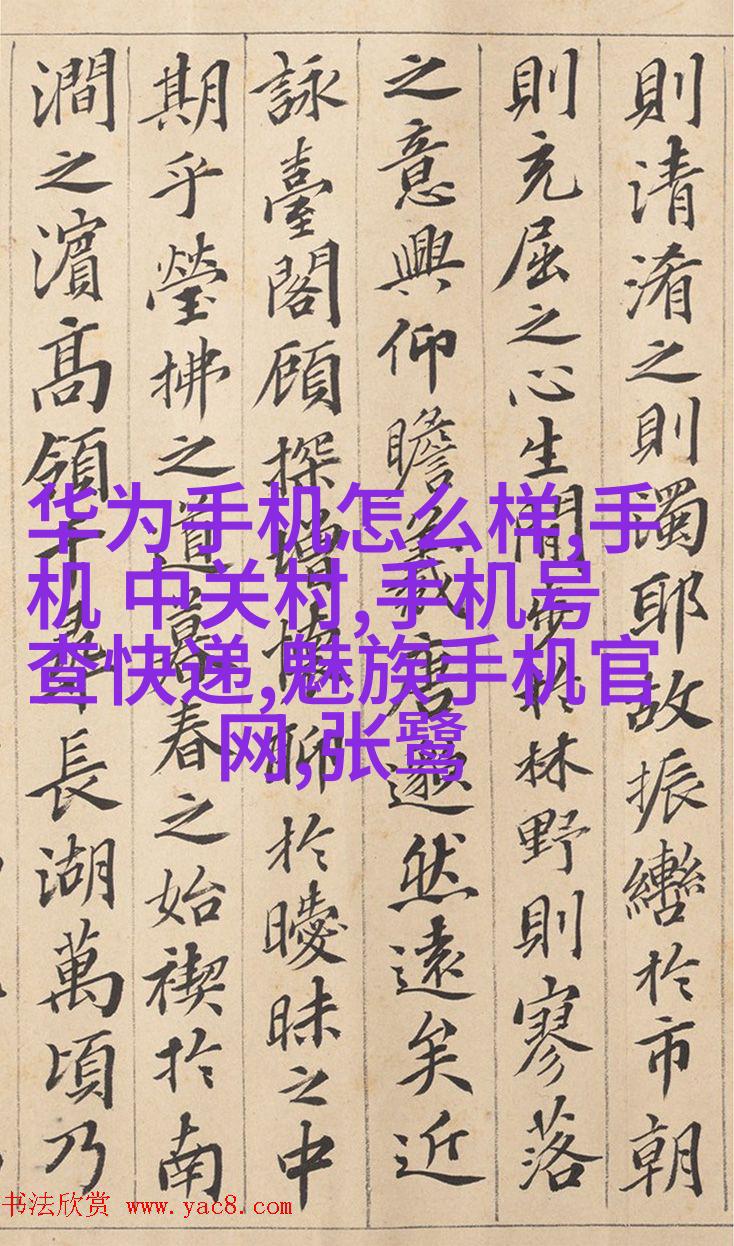 則清淆之則濁耶故振轡於市朝
則充屈之心生閒步於林野則寥落
之意興仰瞻羲唐邈然遠矣近
詠臺閣顧探增懷聊於曖昧之中
期乎瑩拂之道暮春之始禊於南
澗之濱高領千尋長湖萬頃乃
华为手机怎么样,手
机 中关村,手机号
查快递,魅族手机官
网,张鹭
书法欣赏 www.yac8.com